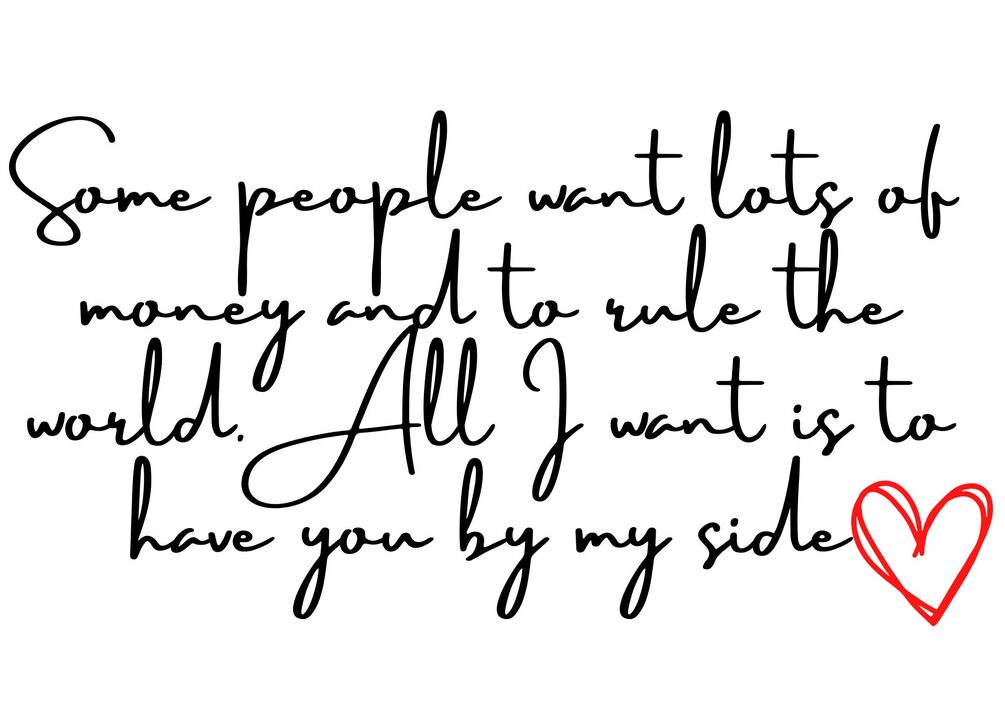 Some people want lots of
money and to rule the
world. All I want is to
have you by my side